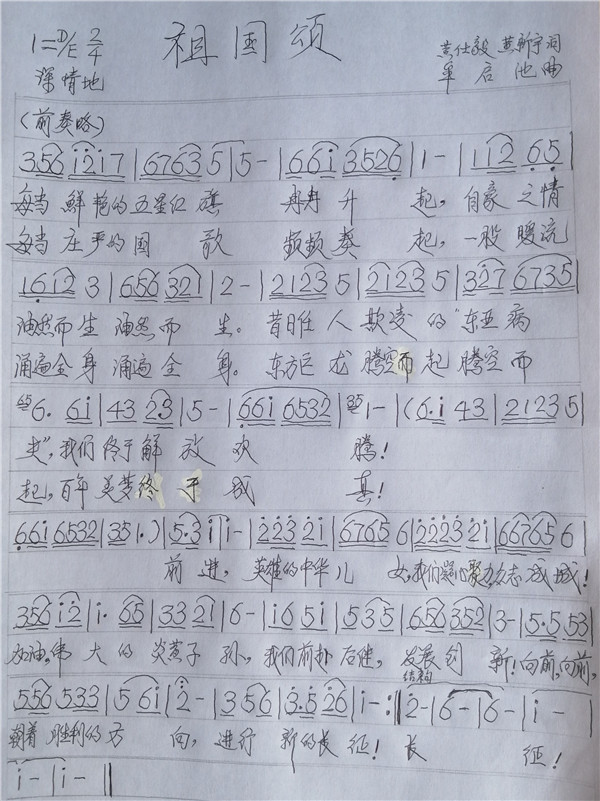 祖国颂
1=D/E 2/4
黄仕毅 黄新宇词
深情地
单启池曲
(前奏略)
356 i2i7 | 67635 | 5- | 66i 3526 | 1- | 112 65 |
每当鲜艳的五星红旗 冉冉升起,自豪之情
每当庄严的国歌 频频奏起,一股暖流
1612 3 | 656 321 | 2- | 2123 5 | 2123 5 | 327 6735 |
油然而生油然而生。昔日任人欺凌的"东亚病
涌遍全身涌遍全身。东方巨龙腾空而起腾空而
65 6. 6i | 43 23 | 5- | 66i 6532 | 35 1- | (6.i 43 | 2123 5 |
夫",我们终于解放欢腾!
起,百年美梦终于成真!
66i 6532 | 351.) | 5.3 i | i- | 2223 2i | 6765 6 | 2223 2i | 66765 6 |
前进,英雄的中华儿女,我们凝心聚力众志成城!
356 i2 | i. 65 | 33 21 | 6- | i6 5i | 535 | 656 352 | 3- | 5.5 53 |
加油,伟大的炎黄子孙,我们前扑后继,发展创新!向前,向前,
结构
556 533 | 5 6i | 2- | 356 | 3.5 26 | i- :|| 2- | 6- | 6- | i- |
朝着胜利的方向,进行新的长征!长征!
i- | i- ||